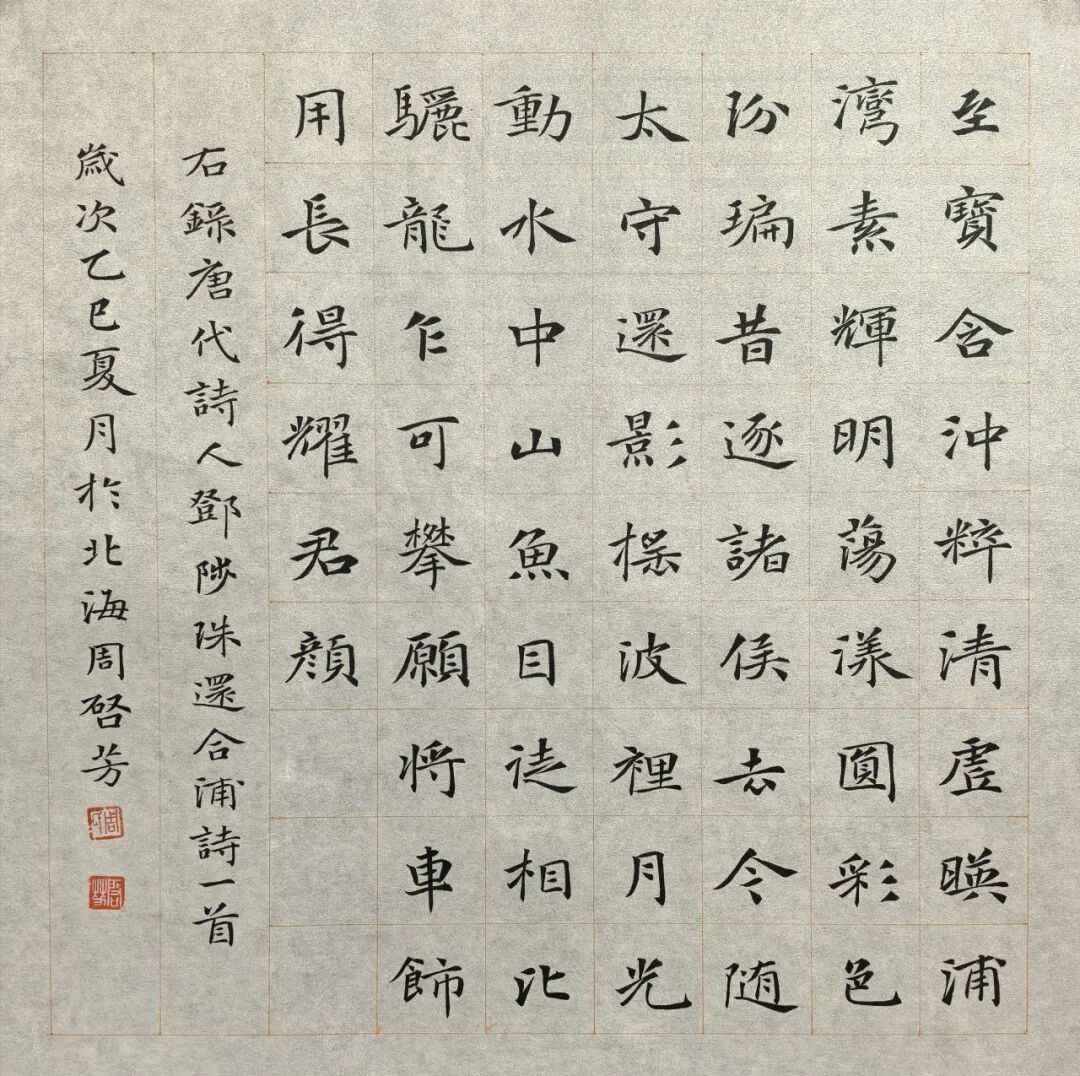 至寶含沖粹清虛暎浦
灣素輝明蕩漾圓彩色
玢㻞昔逐諸侯去今随
太守還影揺波裡月光
動水中山魚目徒相比
驪龍乍可攀願將車飾
用長得耀君顔
右錄唐代詩人鄧陟珠還合浦詩一首
歲次乙巳夏月於北海周啓芳
啓芳